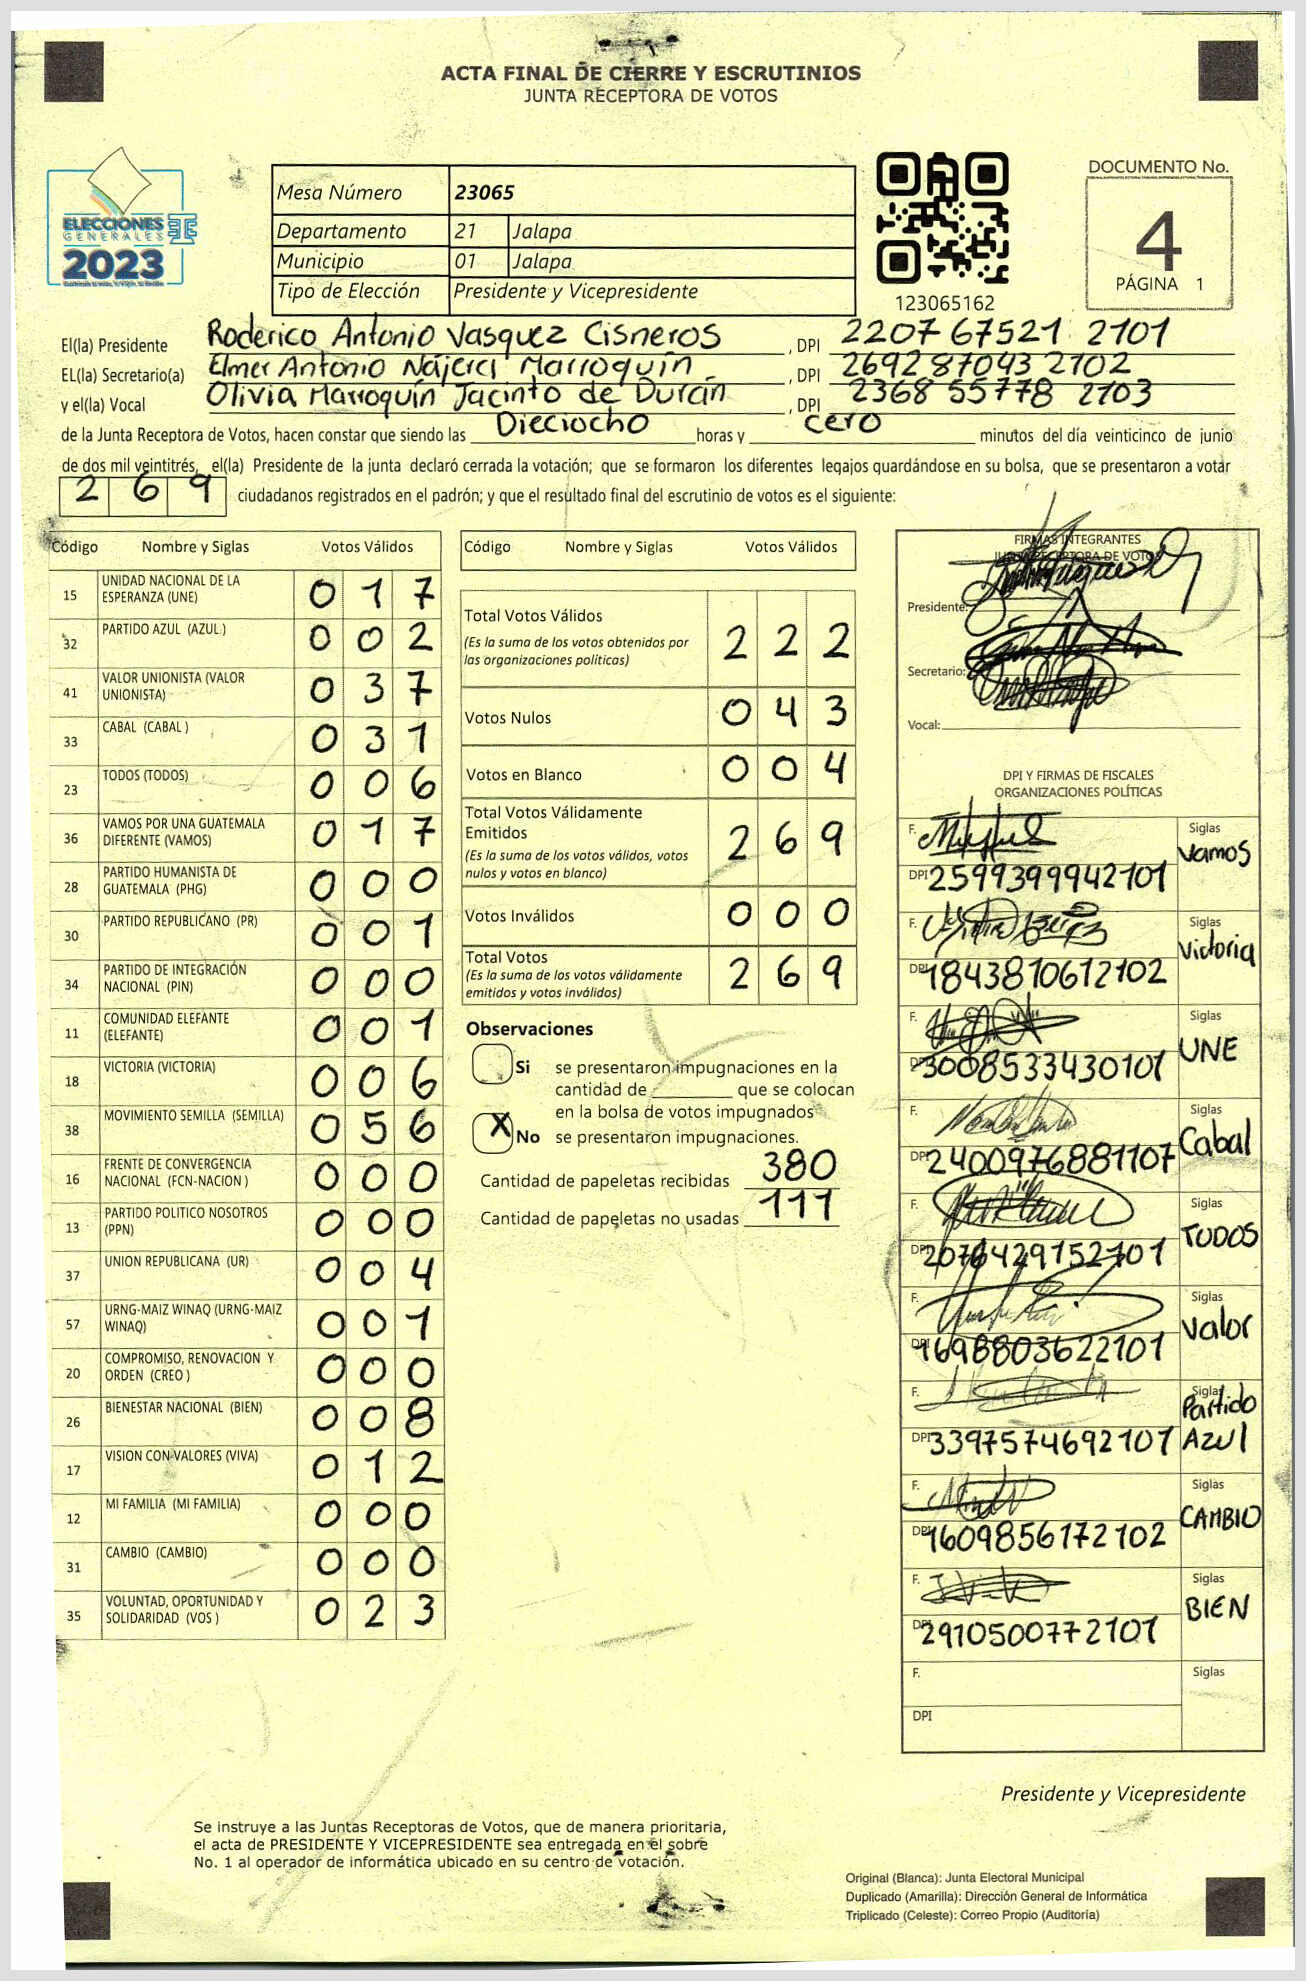 ACTA FINAL DE CIERRE Y ESCRUTINIOS
JUNTA RECEPTORA DE VOTOS
ELECCIONES
GENERALES
2023
Mesa Número 23065
Departamento 21 Jalapa
Municipio 01 Jalapa
Tipo de Elección Presidente y Vicepresidente
123065162
DOCUMENTO No.
4
PÁGINA 1
El(la) Presidente Roderico Antonio Vasquez Cisneros, DPI 2207 67521 2101
EL(la) Secretario(a) Elmer Antonio Nájera Marroquín, DPI 2692 87043 2102
y el(la) Vocal Olivia Marroquín Jacinto de Durán, DPI 2368 55778 2103
de la Junta Receptora de Votos, hacen constar que siendo las Dieciocho horas y cero minutos del día veinticinco de junio
de dos mil veintitrés, el(la) Presidente de la junta declaró cerrada la votación; que se formaron los diferentes legajos quardándose en su bolsa, que se presentaron a votar
269 ciudadanos registrados en el padrón; y que el resultado final del escrutinio de votos es el siguiente:
Código Nombre y Siglas Votos Válidos
15 UNIDAD NACIONAL DE LA ESPERANZA (UNE) 017
32 PARTIDO AZUL (AZUL) 002
41 VALOR UNIONISTA (VALOR UNIONISTA) 037
33 CABAL (CABAL ) 031
23 TODOS (TODOS) 006
36 VAMOS POR UNA GUATEMALA DIFERENTE (VAMOS) 017
28 PARTIDO HUMANISTA DE GUATEMALA (PHG) 000
30 PARTIDO REPUBLICANO (PR) 001
34 PARTIDO DE INTEGRACIÓN NACIONAL (PIN) 000
11 COMUNIDAD ELEFANTE (ELEFANTE) 001
18 VICTORIA (VICTORIA) 006
38 MOVIMIENTO SEMILLA (SEMILLA) 056
16 FRENTE DE CONVERGENCIA NACIONAL (FCN-NACION ) 000
13 PARTIDO POLITICO NOSOTROS (PPN) 000
37 UNION REPUBLICANA (UR) 004
57 URNG-MAIZ WINAQ (URNG-MAIZ WINAQ) 001
20 COMPROMISO, RENOVACION Y ORDEN (CREO ) 000
26 BIENESTAR NACIONAL (BIEN) 008
17 VISION CON VALORES (VIVA) 012
12 MI FAMILIA (MI FAMILIA) 000
31 CAMBIO (CAMBIO) 000
35 VOLUNTAD, OPORTUNIDAD Y SOLIDARIDAD (VOS ) 023
Código Nombre y Siglas Votos Válidos
Total Votos Válidos 222
(Es la suma de los votos obtenidos por
las organizaciones políticas)
Votos Nulos 043
Votos en Blanco 004
Total Votos Válidamente
Emitidos 269
(Es la suma de los votos válidos, votos
nulos y votos en blanco)
Votos Inválidos 000
Total Votos 269
(Es la suma de los votos válidamente
emitidos y votos inválidos)
Observaciones
Si se presentaron impugnaciones en la
cantidad de ________ que se colocan
en la bolsa de votos impugnados
X No se presentaron impugnaciones.
Cantidad de papeletas recibidas 380
Cantidad de papeletas no usadas 111
FIRMAS INTEGRANTES
JUNTA RECEPTORA DE VOTOS
Presidente:
Secretario:
Vocal:
DPI Y FIRMAS DE FISCALES
ORGANIZACIONES POLÍTICAS
F. Siglas Vamos
DPI 2599399942101
F. Siglas Victoria
DPI 1843810612102
F. Siglas UNE
DPI 3008533430101
F. Siglas Cabal
DPI 2400976881107
F. Siglas TODOS
DPI 2076429152101
F. Siglas Valor
DPI 1698803622101
F. Siglas Partido Azul
DPI 3397574692101
F. Siglas CAMBIO
DPI 1609856172102
F. Siglas BIEN
DPI 2910500772101
F. Siglas
DPI
Presidente y Vicepresidente
Se instruye a las Juntas Receptoras de Votos, que de manera prioritaria,
el acta de PRESIDENTE Y VICEPRESIDENTE sea entregada en el sobre
No. 1 al operador de informática ubicado en su centro de votación.
Original (Blanca): Junta Electoral Municipal
Duplicado (Amarilla): Dirección General de Informática
Triplicado (Celeste): Correo Propio (Auditoría)